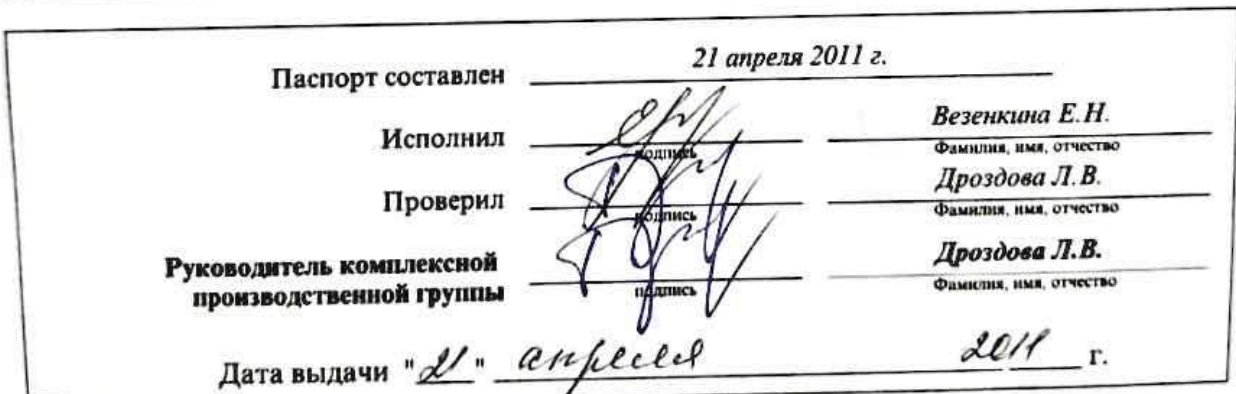 Паспорт составлен 21 апреля 2011 г.
Исполнил Везенкина Е.Н.
подпись Фамилия, имя, отчество
Проверил Дроздова Л.В.
подпись Фамилия, имя, отчество
Руководитель комплексной
производственной группы Дроздова Л.В.
подпись Фамилия, имя, отчество
Дата выдачи "21" апреля 2011 г.